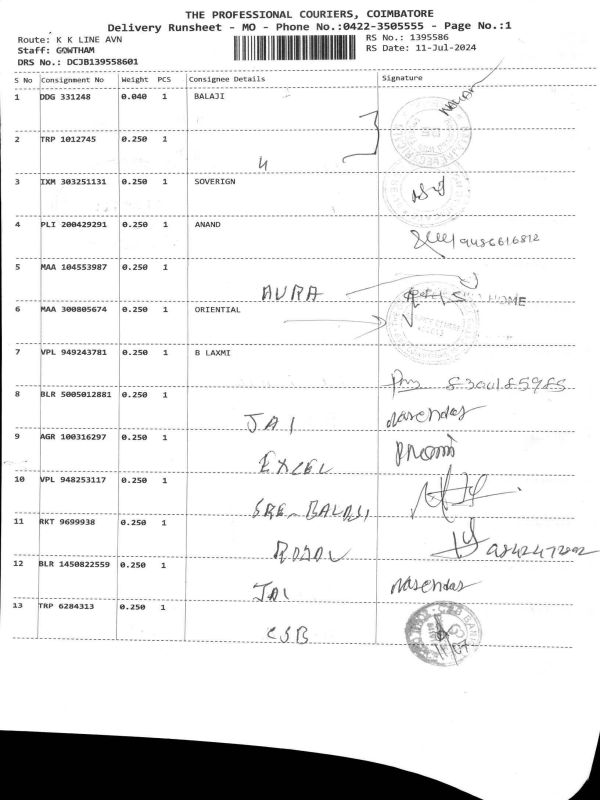 THE PROFESSIONAL COURIERS, COIMBATORE
Delivery Runsheet - MO - Phone No.:0422-3505555 - Page No.:1
Route: K K LINE AVN
RS No.: 1395586
Staff: GOWTHAM
RS Date: 11-Jul-2024
DRS No.: DCJB139558601
S No Consignment No Weight PCS Consignee Details Signature
1 DDG 331248 0.040 1 BALAJI
2 TRP 1012745 0.250 1
4
3 IXM 303251131 0.250 1 SOVERIGN
4 PLI 200429291 0.250 1 ANAND
9486616812
5 MAA 104553987 0.250 1
AURA
HOME
6 MAA 300805674 0.250 1 ORIENTIAL
7 VPL 949243781 0.250 1 B LAXMI
8 BLR 5005012881 0.250 1
JAI Narendar
9 AGR 100316297 0.250 1
EXCEL
10 VPL 948253117 0.250 1
SRE-BALAJI
11 RKT 9699938 0.250 1
12 BLR 1450822559 0.250 1
JAI Narendar
13 TRP 6284313 0.250 1
CSB